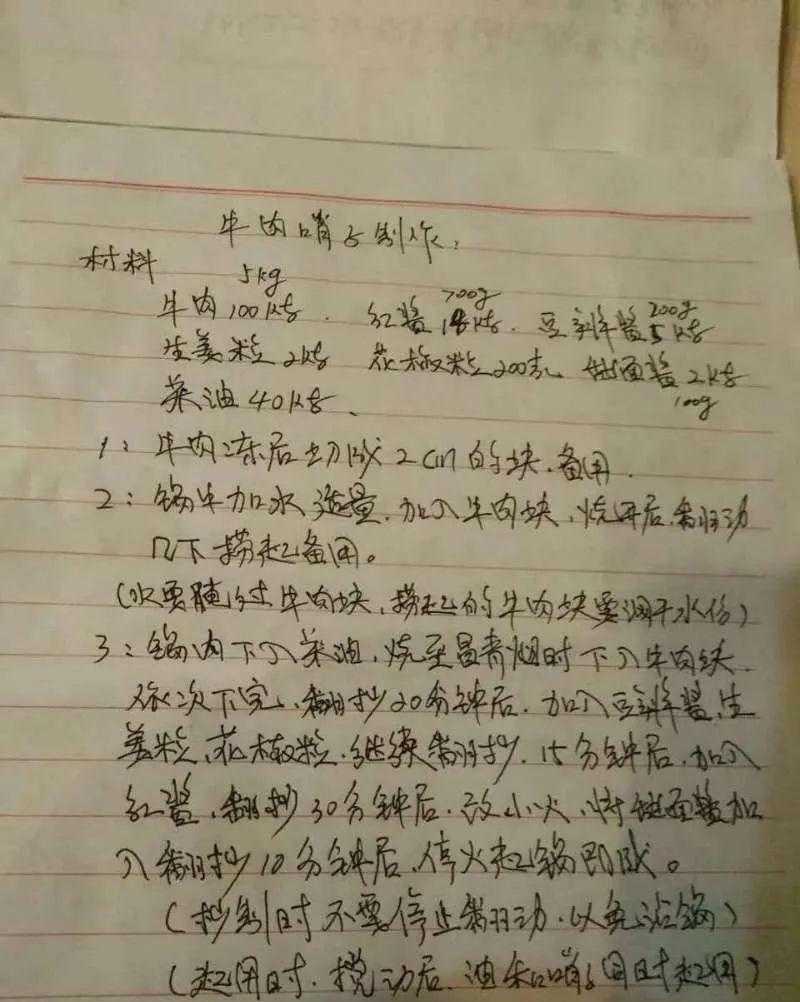 牛肉哨子制作：
材料 5kg
牛肉100kg. 红酱18kg. 700g 豆瓣酱5kg 200g
生姜粒2kg 花椒粒200克、甜面酱2kg
菜油40kg、 100g
1：牛肉冻后切成2cm的块、备用.
2：锅中加水适量、加入牛肉块、烧开后、翻动
几下捞起备用。
(水要淹过牛肉块、捞起的牛肉块要滴干水份)
3：锅内下入菜油、烧至冒青烟时下入牛肉块
依次下完、翻抄20分钟后、加入豆瓣酱、生
姜粒、花椒粒、继续翻抄、15分钟后、加入
红酱、翻抄30分钟后、改小火、将甜面酱加
入翻抄10分钟后、停火起锅即成。
(抄制时不要停止翻动、以免沾锅)
(起用时、搅动后、油和哨子同时起用)